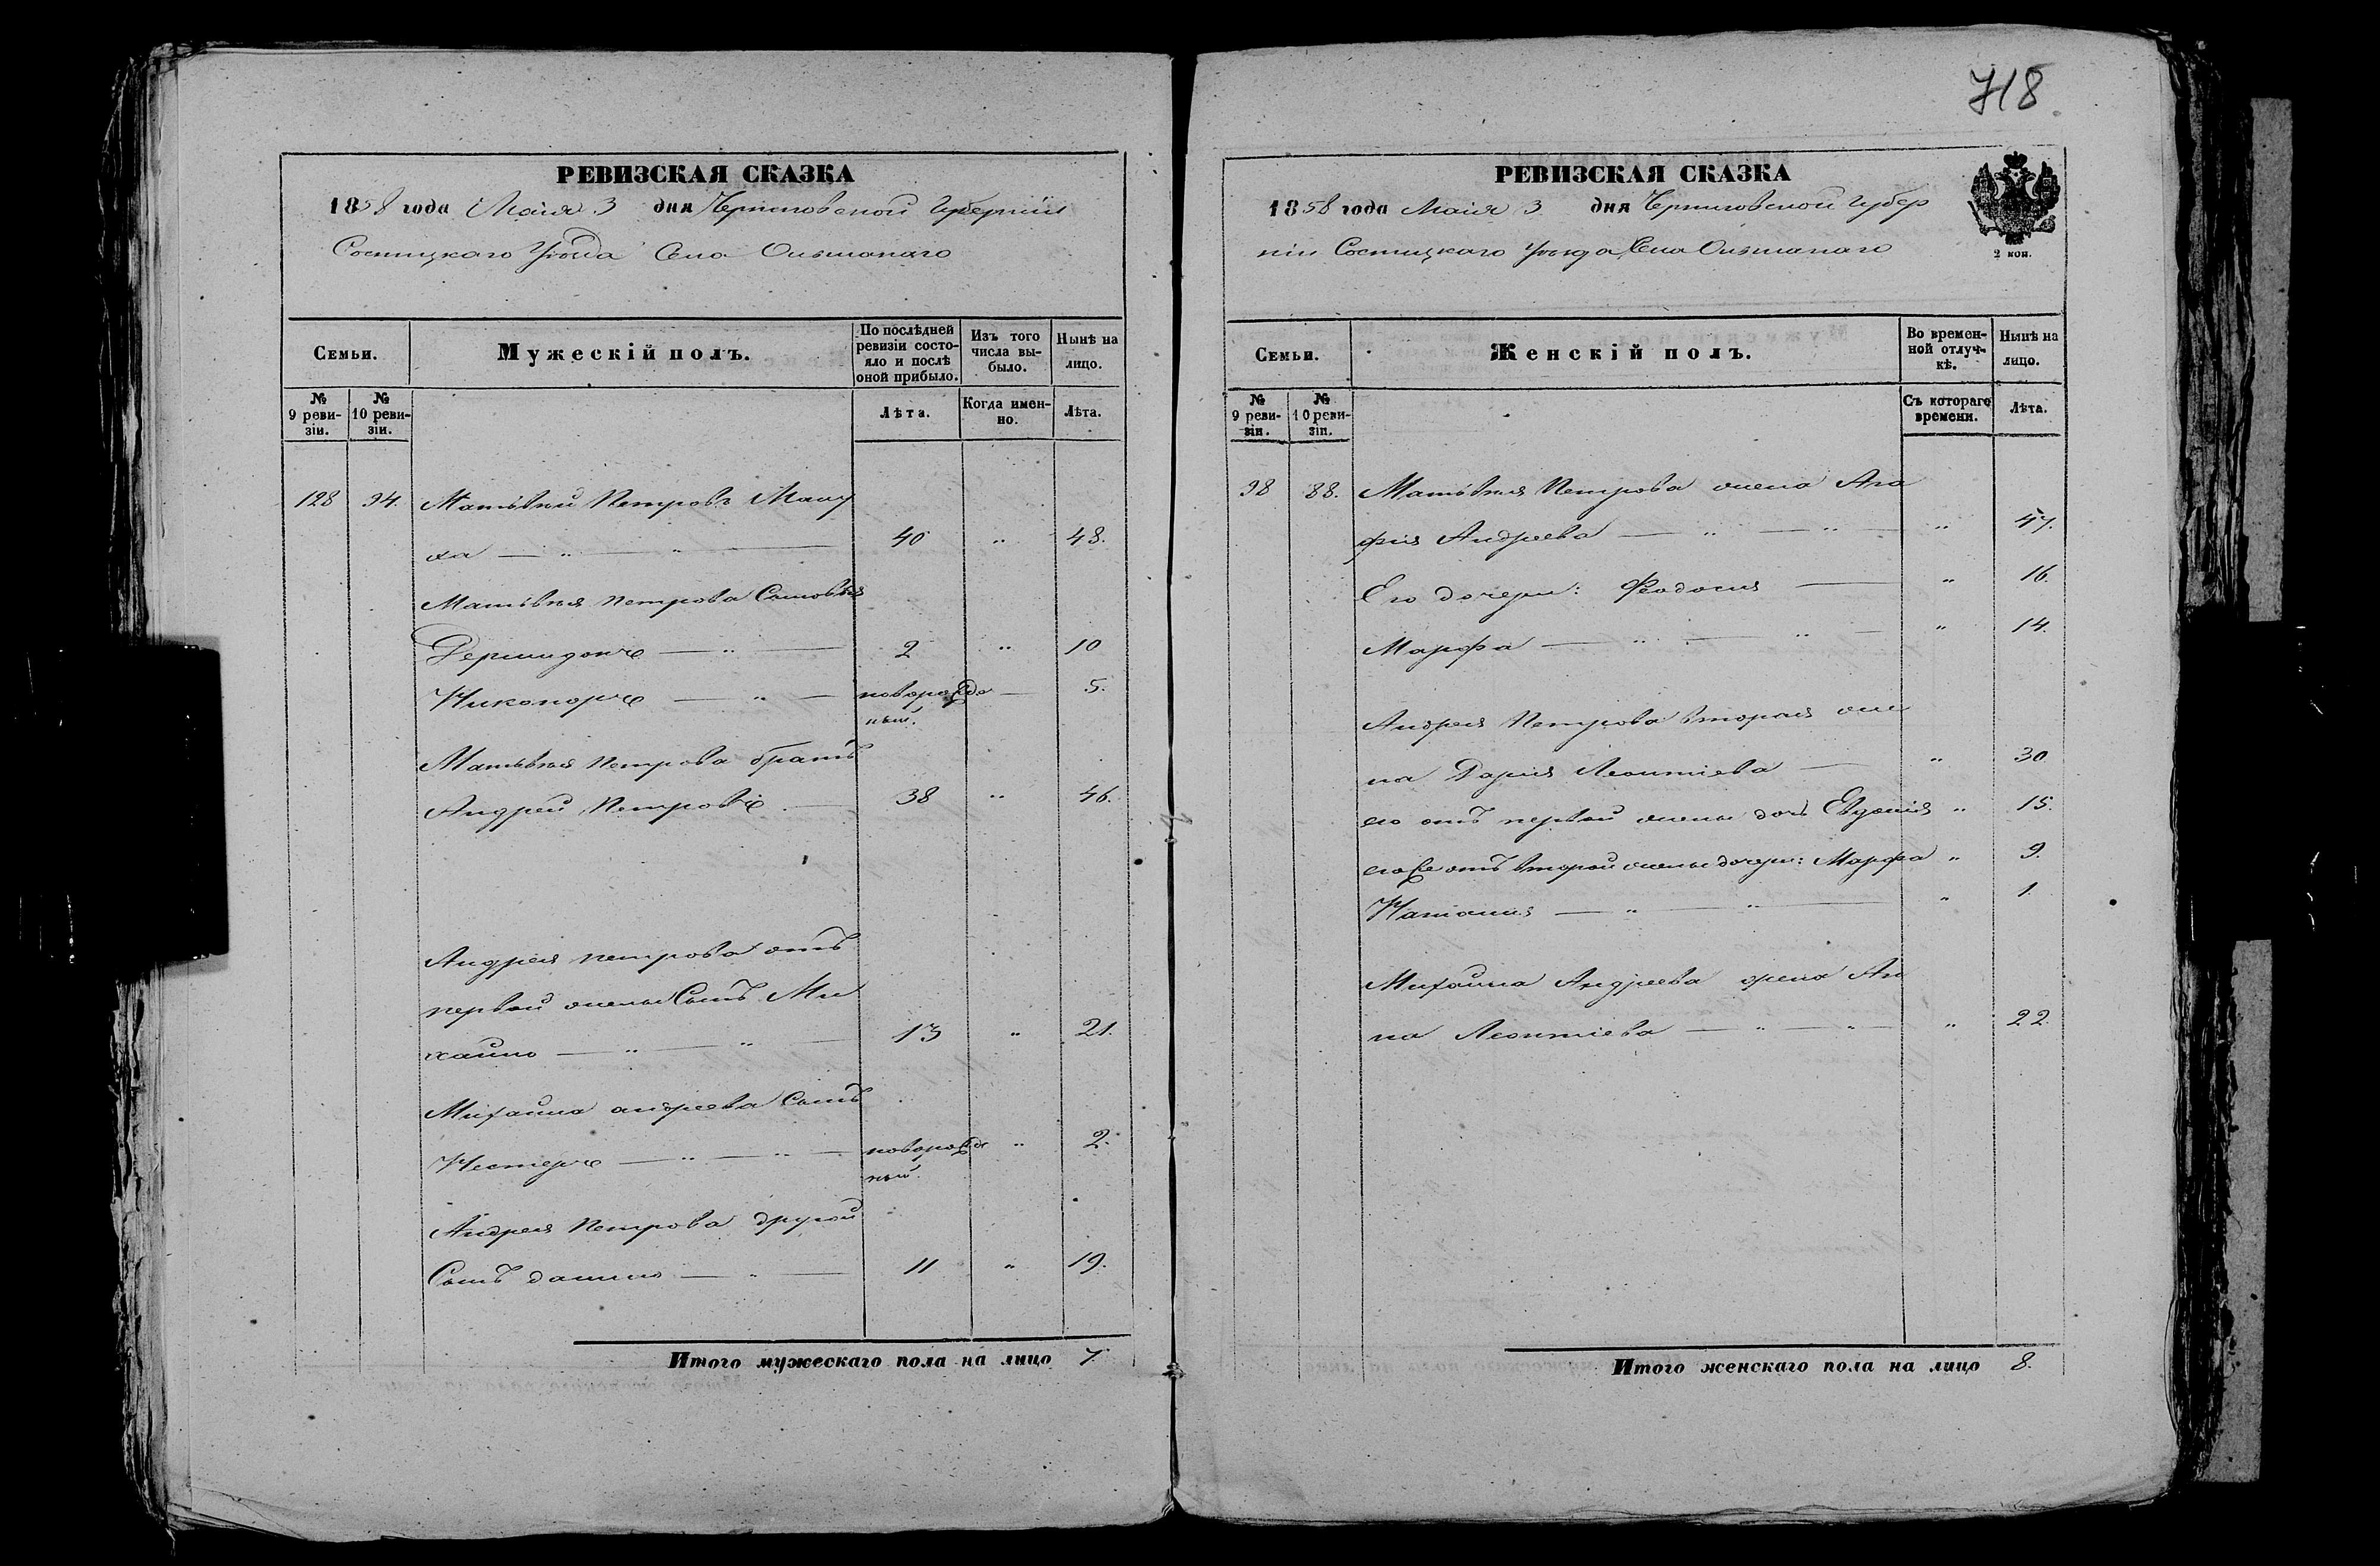 718
РЕВИЗСКАЯ СКАЗКА
1858 года Маія 3 дня Черниговской Губерніи
Сосницкаго Уѣзда Села Ольшанаго
Семьи.
Мужескій полъ.
По послѣдней ревизіи состояло и послѣ оной прибыло.
Изъ того числа выбыло.
Нынѣ на лицо.
№ 9 ревизіи.
№ 10 ревизіи.
Лѣта.
Когда именно.
Лѣта.
128 94. Матвѣй Петровъ
ха — „ — „ — 40 „ 48.
Матвѣя Петрова Сыновья
2 „ 10
Никоноръ — „ — новорожде — 5.
ный.
Матвѣя Петрова братъ
Андрей Петровъ — 38 „ 46.
Андрея Петрова отъ
первой жены Сынъ Ми
хайло — „ — „ — 13 „ 21.
Михайла Андреева Сынъ
Нестеръ — „ — „ — новорожде „ 2.
ный.
Андрея Петрова другой
Сынъ Данило — „ — 11 „ 19.
Итого мужескаго пола на лицо 7.
РЕВИЗСКАЯ СКАЗКА
1858 года Маія 3 дня Черниговской Губер
ніи Сосницкаго Уѣзда Села Ольшанаго
2 коп.
Семьи.
Женскій полъ.
Во временной отлучкѣ.
Нынѣ на лицо.
№ 9 ревизіи.
№ 10 ревизіи.
Съ котораго времени.
Лѣта.
98 88. Матвѣя Петрова жена Ага
фія Андреева — „ — „ — „ 47.
Его дочери: Феодосия — „ 16.
Марфа — „ — „ — „ 14.
Андрея Петрова вторая же
на Дарія Леонтіева — „ 30
его отъ первой жены дочь Евдокія „ 15.
его же отъ второй жены дочери: Марфа „ 9.
Наталия — „ — „ — „ 1.
Михайла Андреева жена Ан
на Леонтіева — „ „ — „ 22.
Итого женскаго пола на лицо 8.